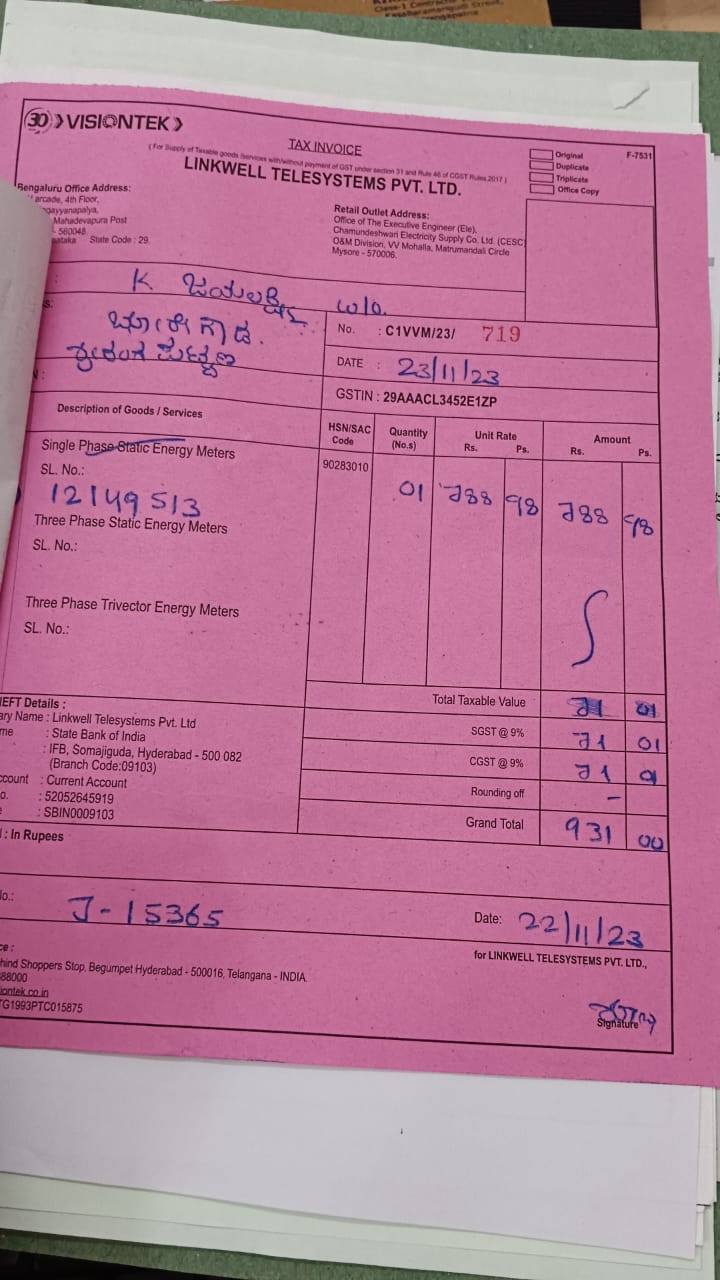 Class-1 Contractor
30 VISIONTEK
TAX INVOICE
(For Supply of Taxable goods /services with/without payment of GST under section 31 and Rule 46 of CGST Rules,2017)
LINKWELL TELESYSTEMS PVT. LTD.
Original
Duplicate
Triplicate
Office Copy
F-7531
Bengaluru Office Address:
arcade, 4th Floor,
Mahadevapura Post
- 560048
State Code : 29.
Retail Outlet Address:
Office of The Executive Engineer (Ele),
Chamundeshwari Electricity Supply Co. Ltd. (CESC)
O&M Division, VV Mohalla, Matrumandali Circle
Mysore - 570006.
K. ಜಯಲಕ್ಷ್ಮಿ w/o.
No. : C1VVM/23/ 719
DATE : 23/11/23
GSTIN : 29AAACL3452E1ZP
Description of Goods / Services
HSN/SAC Code
Quantity (No.s)
Unit Rate Rs. Ps.
Amount Rs. Ps.
Single Phase Static Energy Meters
90283010 01 788 98 788 98
SL. No.:
12149513
Three Phase Static Energy Meters
SL. No.:
Three Phase Trivector Energy Meters
SL. No.:
Total Taxable Value
SGST @ 9% 71 01
CGST @ 9% 71 01
Rounding off -
Grand Total 931 00
EFT Details :
ary Name : Linkwell Telesystems Pvt. Ltd
me : State Bank of India
: IFB, Somajiguda, Hyderabad - 500 082
(Branch Code:09103)
ccount : Current Account
o. : 52052645919
: SBIN0009103
: In Rupees
No.: J-15365
Date: 22/11/23
for LINKWELL TELESYSTEMS PVT. LTD.,
hind Shoppers Stop, Begumpet Hyderabad - 500016, Telangana - INDIA.
88000
iontek.co.in
TG1993PTC015875
Signature